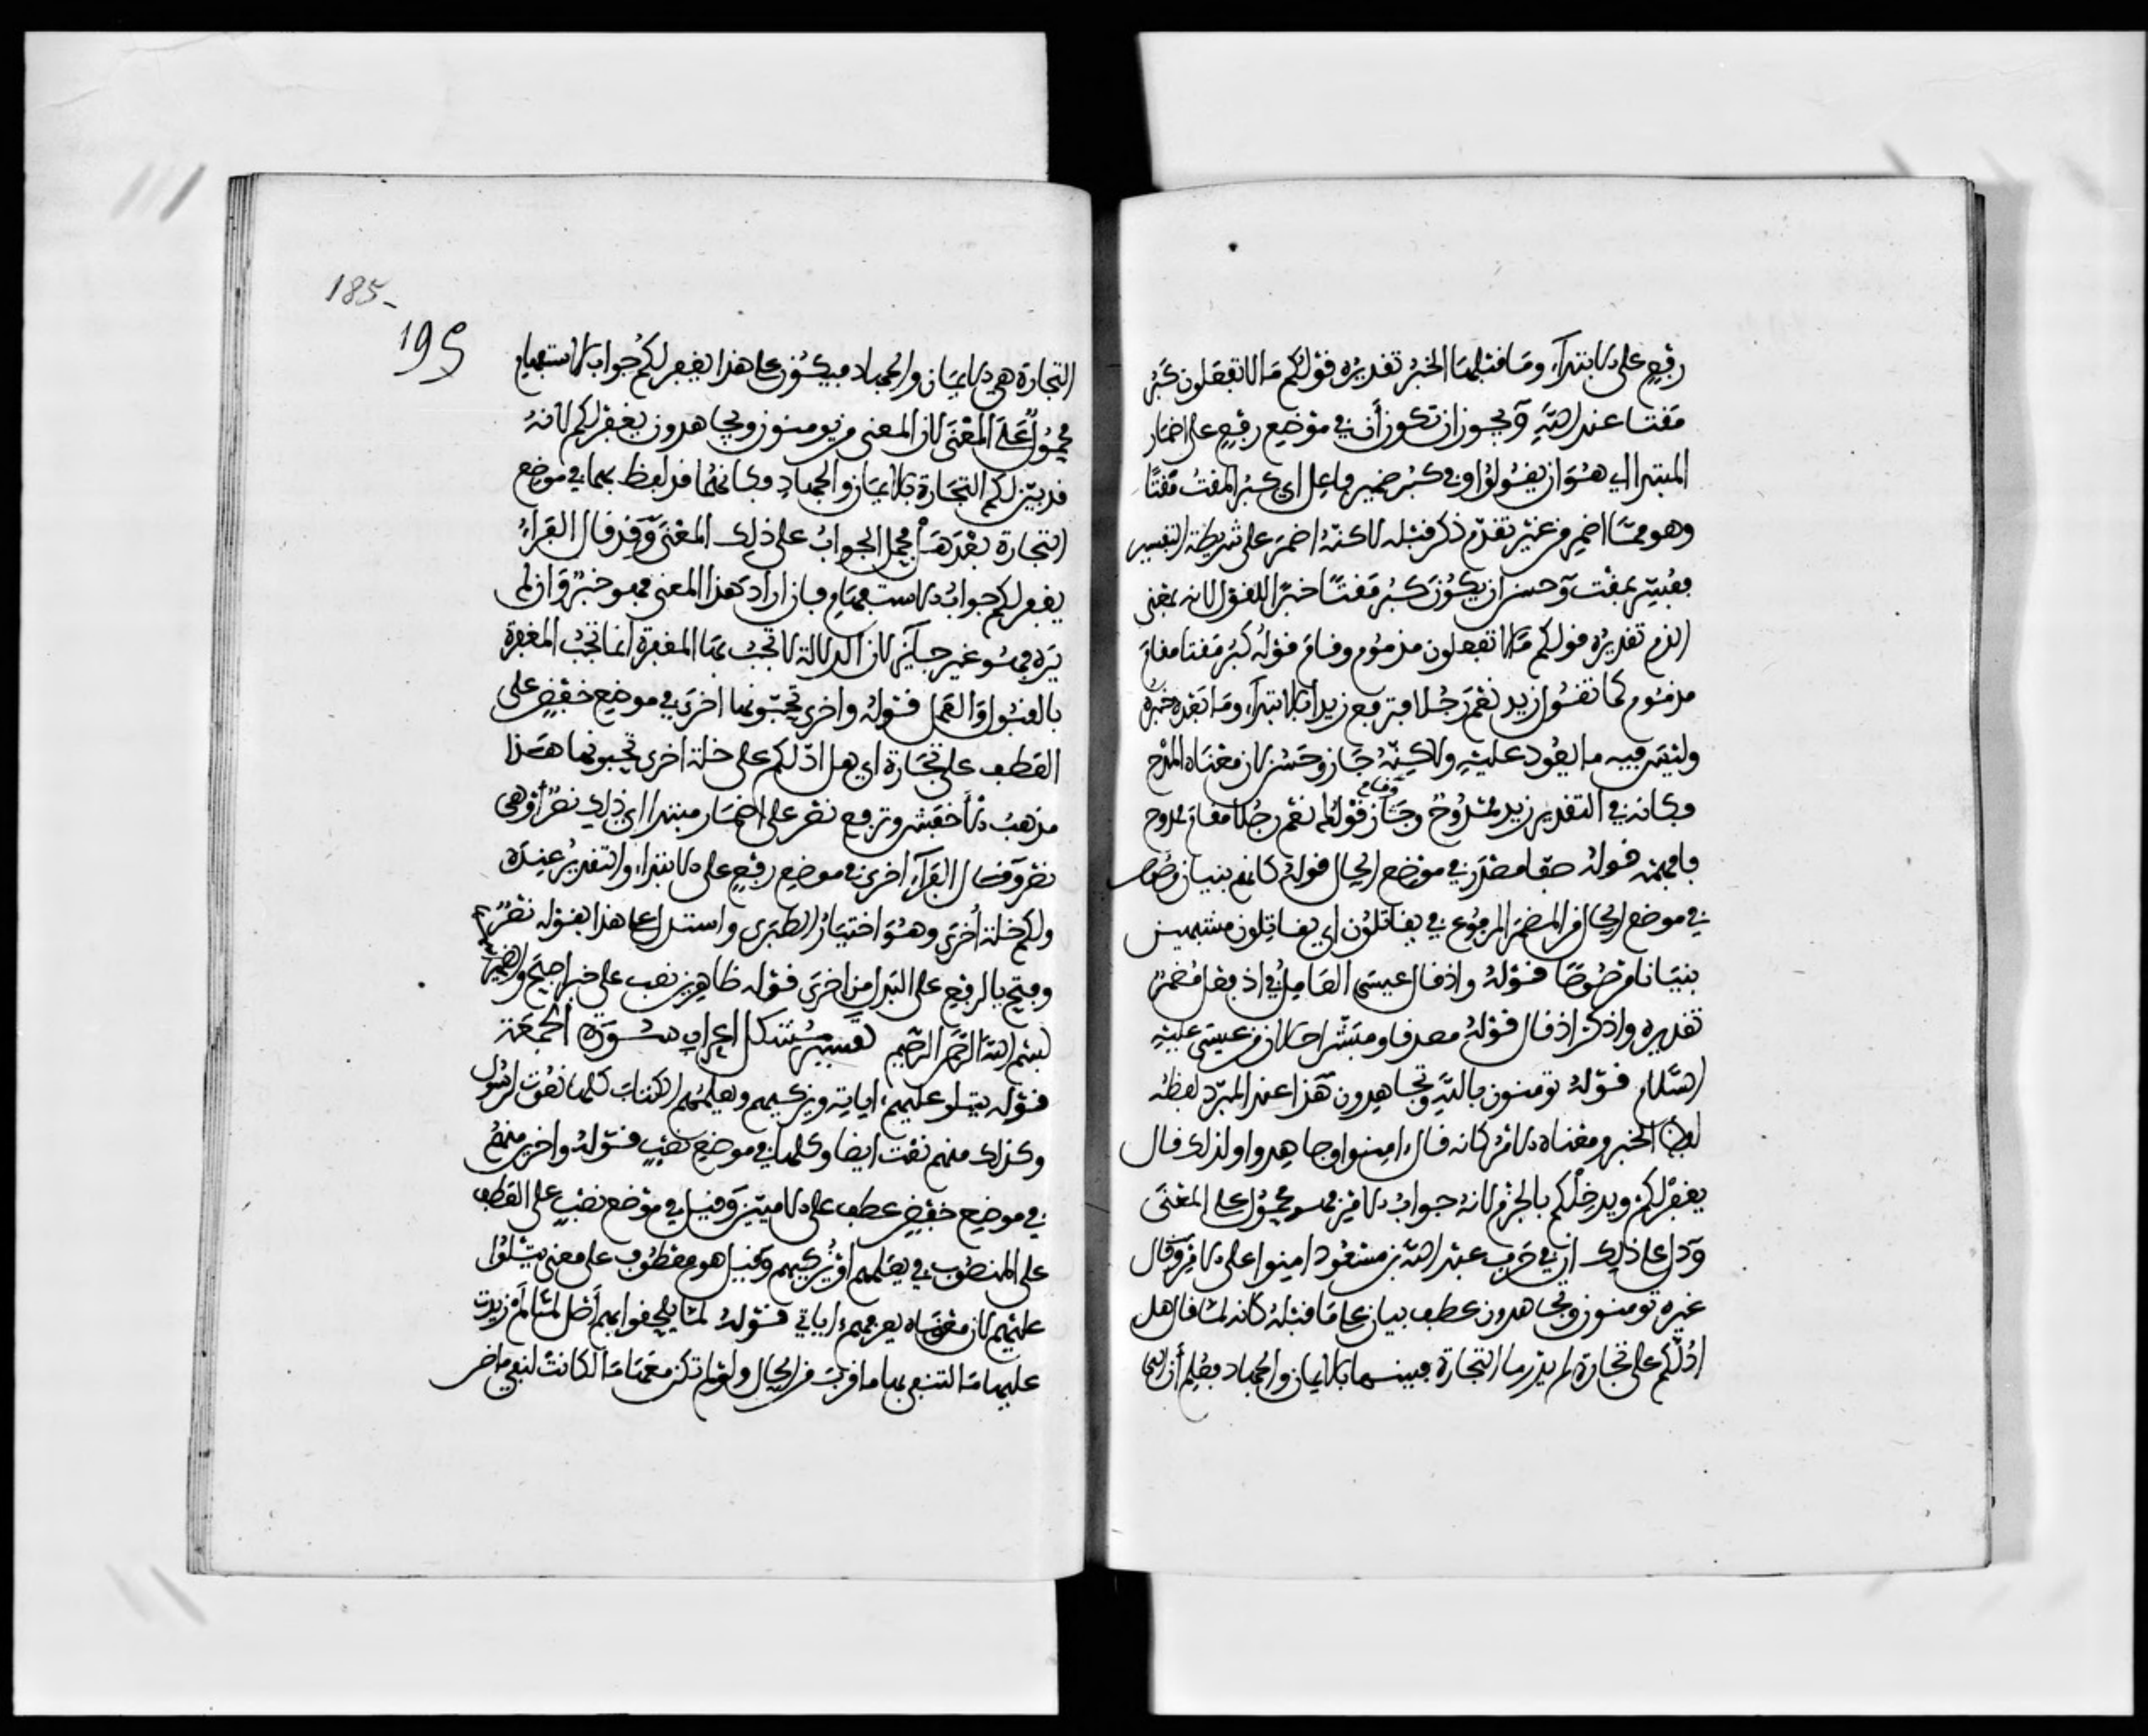 رفع على الابتداء وما قبلها الخبر تقديره قولكم ما لا تفعلون كبر
مقتا عند الله ويجوز ان تكون أن في موضع رفع على اضمار
المبتدا اي هو ان يقولوا وفي كبر ضمير فاعل اي كبر المقت مقتا
وهو مما اضمر من غير تقدم ذكر قبله لاكنه اضمر على شريطة التفسير
ففسر بمقت وحسن ان يكون كبر مقتا خبرا للقول لانه بمعنى
الذم تقديره قولكم ما لا تفعلون مذموم وقام قوله كبر مقتا مقام
مذموم كما تقول زيد نعم رجلا فترفع زيدا بالابتداء وما بعده خبره
وليس فيه ما يعود عليه ولاكنه جاز وحسن لان معناه المدح
وكانه في التقدير زيد ممدوح وجاز وقام قولهم نعم رجلا مقام ممدوح
فافهمه قوله صفا مصدر في موضع الحال قوله كانهم بنيان مرصوص
في موضع الحال من المضمر المرفوع في يقاتلون اي يقاتلون مشبهين
بنيانا مرصوصا قوله واذ قال عيسى العامل في اذ فعل مضمر
تقديره واذكر اذ قال قوله مصدقا ومبشرا حالان من عيسى عليه
السلام قوله تومنون بالله وتجاهدون هذا عند المبرد لفظه
لفظ الخبر ومعناه الامر كانه قال امنوا وجاهدوا ولذلك قال
يغفر لكم ويدخلكم بالجزم لانه جواب الامر فهو محمول على المعنى
ودل على ذلك ان في حرف عبد الله بن مسعود امنوا على الامر وقال
غيره تومنون وتجاهدون عطف بيان على ما قبله كانه لما قال هل
ادلكم على تجارة لم يدر ما التجارة فبينها بالايمان والجهاد فعلم أن
185
195
التجارة هي الايمان والجهاد فيكون على هذا يغفر لكم جواب الاستفهام
محمول على المعنى لان المعنى هل تومنون وتجاهدون يغفر لكم لانه
قد بين لكم التجارة بالايمان والجهاد وكانهما قد لفظ بهما في موضع
التجارة بعد هل فحمل الجواب على ذلك المعنى وقد قال الفراء
يغفر لكم جواب الاستفهام فان اراد هذا المعنى فهو حسن وان لم
يرده فهو غير جايز لان الدلالة لا تجب بها المغفرة انما تجب المغفرة
بالقبول والعمل قوله واخرى تحبونها اخرى في موضع خفض على
العطف على تجارة اي هل ادلكم على خلة اخرى تحبونها هذا
مذهب الاخفش وترفع نصر على اضمار مبتدا اي ذلك نصر أو هي
نصر وقال الفراء اخرى في موضع رفع على الابتداء والتقدير عنده
ولكم خلة أخرى وهو اختيار الطبري واستدل على هذا بقوله نصر
وفتح بالرفع على البدل من اخرى قوله ظاهرين نصب على خبر اصبح والضمير
بسم الله الرحمن الرحيم تفسير مشكل اعراب سورة الجمعة
قوله يتلو عليهم اياته ويزكيهم ويعلمهم الكتاب كلها نعوت لرسول
وكذلك منهم نعت ايضا وكلها في موضع نصب قوله واخرين منهم
في موضع خفض عطف على الاميين وقيل في موضع نصب على العطف
على المنصوب في يعلمهم او يزكيهم وقيل هو معطوف على معنى يتلوا
عليهم لان معناه يعرفهم اياتي قوله لما يلحقوا بهم أصل لما لم زيدت
عليها ما لتنفي بها ما قرب من الحال ولو لم تكن معها ما لكانت لنفي ماض